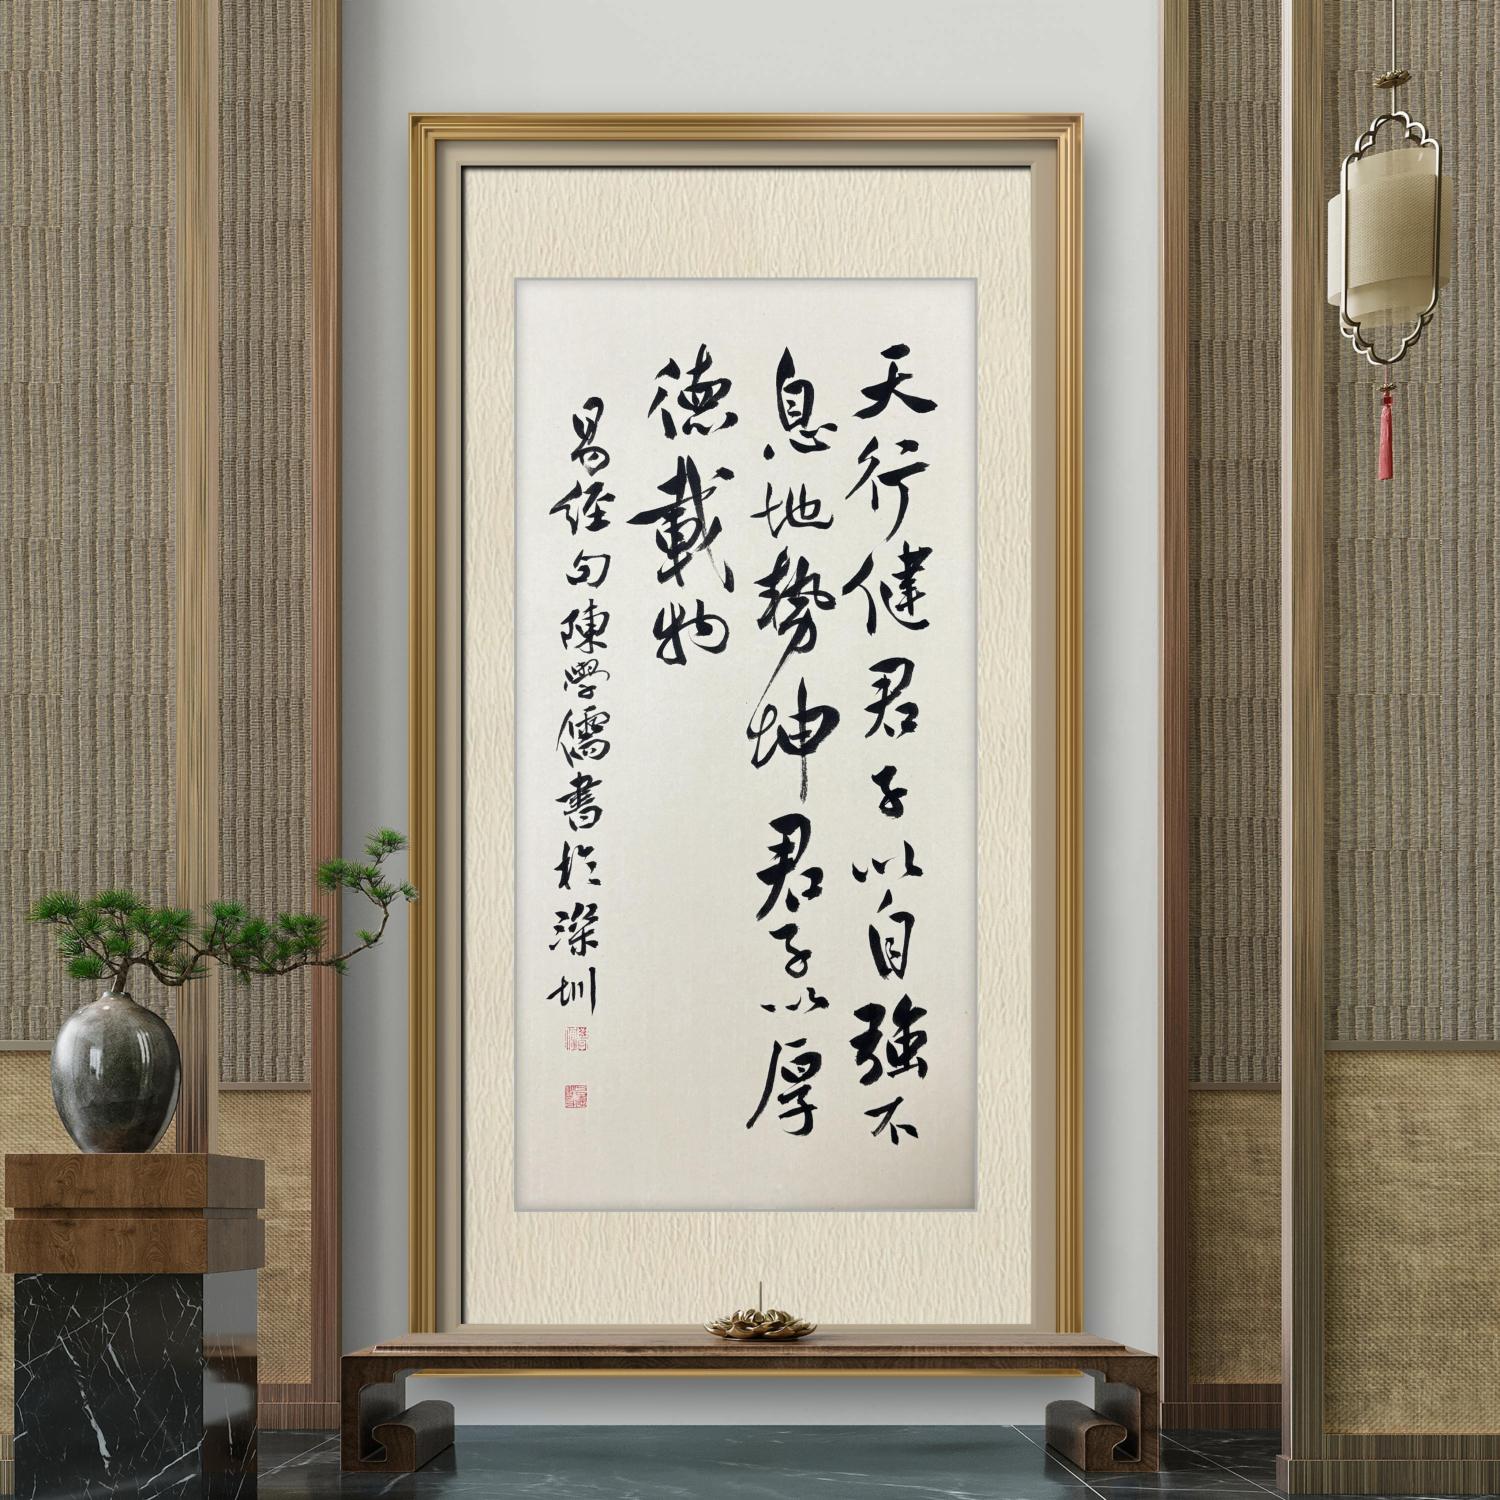 天行健君子以自強不
息地勢坤君子以厚
德載物
易經句陳學儒書於深圳